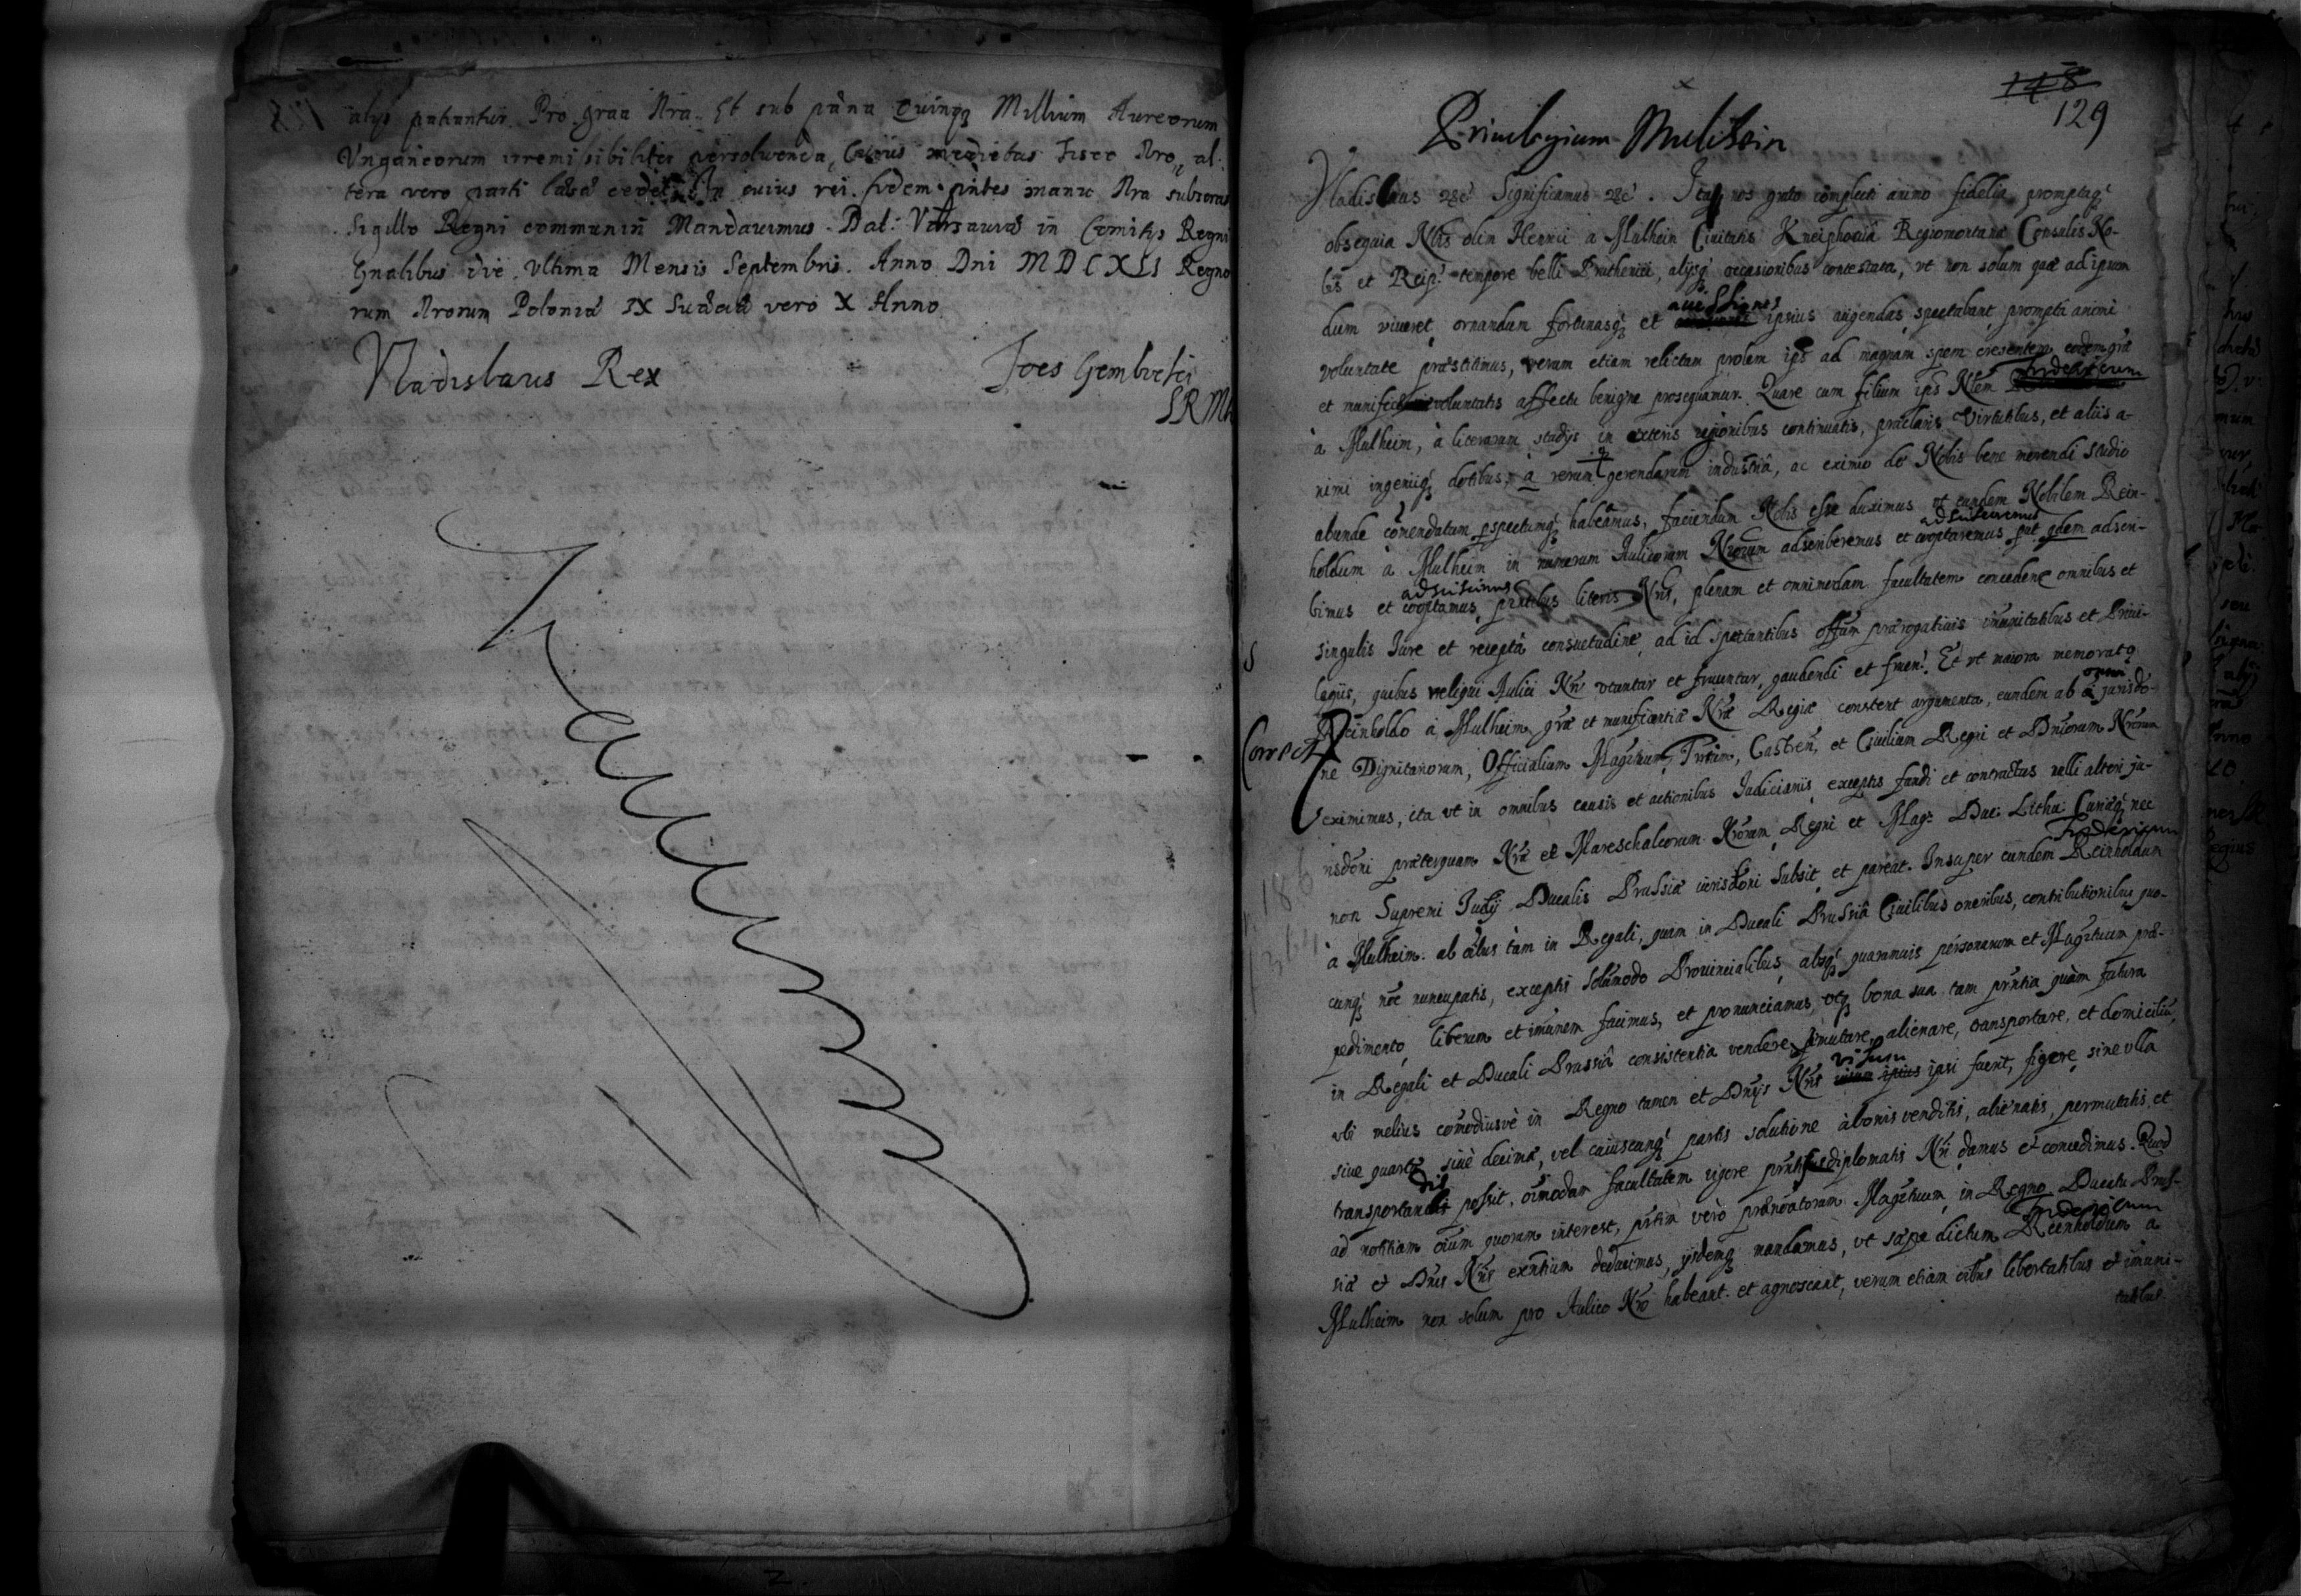 alys patiantur. Pro graa Nra. Et sub pæna Quinqꝫ Millium Aureorum
Ungaricorum irremisibiliter persolvenda, Cuius medietas Fisco Nro, al:
tera vero parti læsæ cedet. In cuius rei fidem pñtes manu Nra subscrat
Sigillo Regni communiri Mandavimus. Dat: Varsaviæ in Comitys Regni
Gnalibus die ultima Mensis Septembris. Anno Dni MDCXLI Regno
rum Nrorum Poloniæ IX Sueciæ vero X Anno
Vladislaus Rex
Joes Gembicki
SRM
148
129
Privilegium Mulihein
Vladislaus etc Significamus etc. Itaq nos grato complecti animo fidelia promptaqꝫ
obsequia Nblis olim Henrici a Mulheim Civitatis Kneiphoviæ Regiomontanæ Consulis No-
bis et Reip. tempore belli Pruthenici, alysqꝫ occasionibus contestata, ut non solum quæ ad ipsum
dum viveret ornandum fortunasqꝫ et ipsius augendas spectabant prompta animi
voluntate præstitimus, verum etiam relictam prolem ips ad magnam spem crescentem eodem græ
et munificæ voluntatis affectu benigne prosequamur. Quare cum filium ips Nlem Fridericum
à Mulheim, à literarum studys in exteris regionibus continuatis, præclaris Virtutibus, et aliis a-
nimi ingeniiqꝫ dotibus, a rerum gerendarum industriâ, ac eximio de Nobis bene merendi studio
abunde comendatum pspectumqꝫ habeamus, faciendum Nobis esse duximus ut eundem Nobilem Rein-
adscisceremus
holdum à Mulheim in numerum Aulicorum Nrorum adscriberemus et cooptaremus put qdem adscri-
adsciscimus
bimus et cooptamus pñtibus literis Nris, plenam et omnimodam facultatem concedene omnibus et
singulis Iure et receptâ consuetudine, ad id spectantibus offum prærogativis imunitatibus et Privi-
legiis, quibus reliqui Aulici Nri utuntur et fruuntur, gaudendi et fruen. Et ut maiora memorato
Reinholdo à Mulheim græ et munificentiæ Nræ Regiæ constent argumenta, eundem ab omni jurisdõ-
Correct
ne Dignitariorum, Officialium Magrtuum, Trium, Castren, et Civilium Regni et Dniorum Nrorum
eximimus, ita ut in omnibus causis et actionibus Iudiciariis exceptis fundi et contractus nulli alteri ju-
risdõni præterquam Nræ et Mareschalcorum Nrorum Regni et Mag: Duc: Lithu: Curiæqꝫ nec
Fridericum
non Supremi Iudy Ducalis Prussiæ iurisdõni subsit et pareat. Insuper eundem Reinholdum
à Mulheim ab oïbus tam in Regali, quam in Ducali Prussiâ Civilibus oneribus, contributionibus quo-
cunqꝫ nõe nuncupatis, exceptis solumodo Provincialibus absqꝫ quaramvis personarum et Magrtuum præ-
pedimento, liberum et imunem facimus, et pronunciamus, utqꝫ bona sua tam pñtia quàm futura
in Regali et Ducali Prussiâ consistentia vendere, pmutare, alienare, transportare, et domicilium,
visum
ubi melius comodiusvè in Regno tamen et Dnys Nris ipsi fuerit, figere sine ulla
sive quartæ sivè decimæ, vel cuiuscunqꝫ partis solutione à bonis venditis, alienatis, permutatis et
transportandis possit, oimodam facultatem vigore pñtis diplomatis Nri damus et concedimus. Quod
ad notitiam oïum quorum interest, pñtim verò prænoatorum Magrtuum in Regno Ducatu Prus-
Fridericum
siæ et Dnis Nris exntium deducimus, ysdemqꝫ mandamus, ut sæpe dictum Reinholdum a
Mulheim non solum pro Aulico Nro habeant et agnoscant, verum etiam oïbus libertatibus et imuni-
tatibus